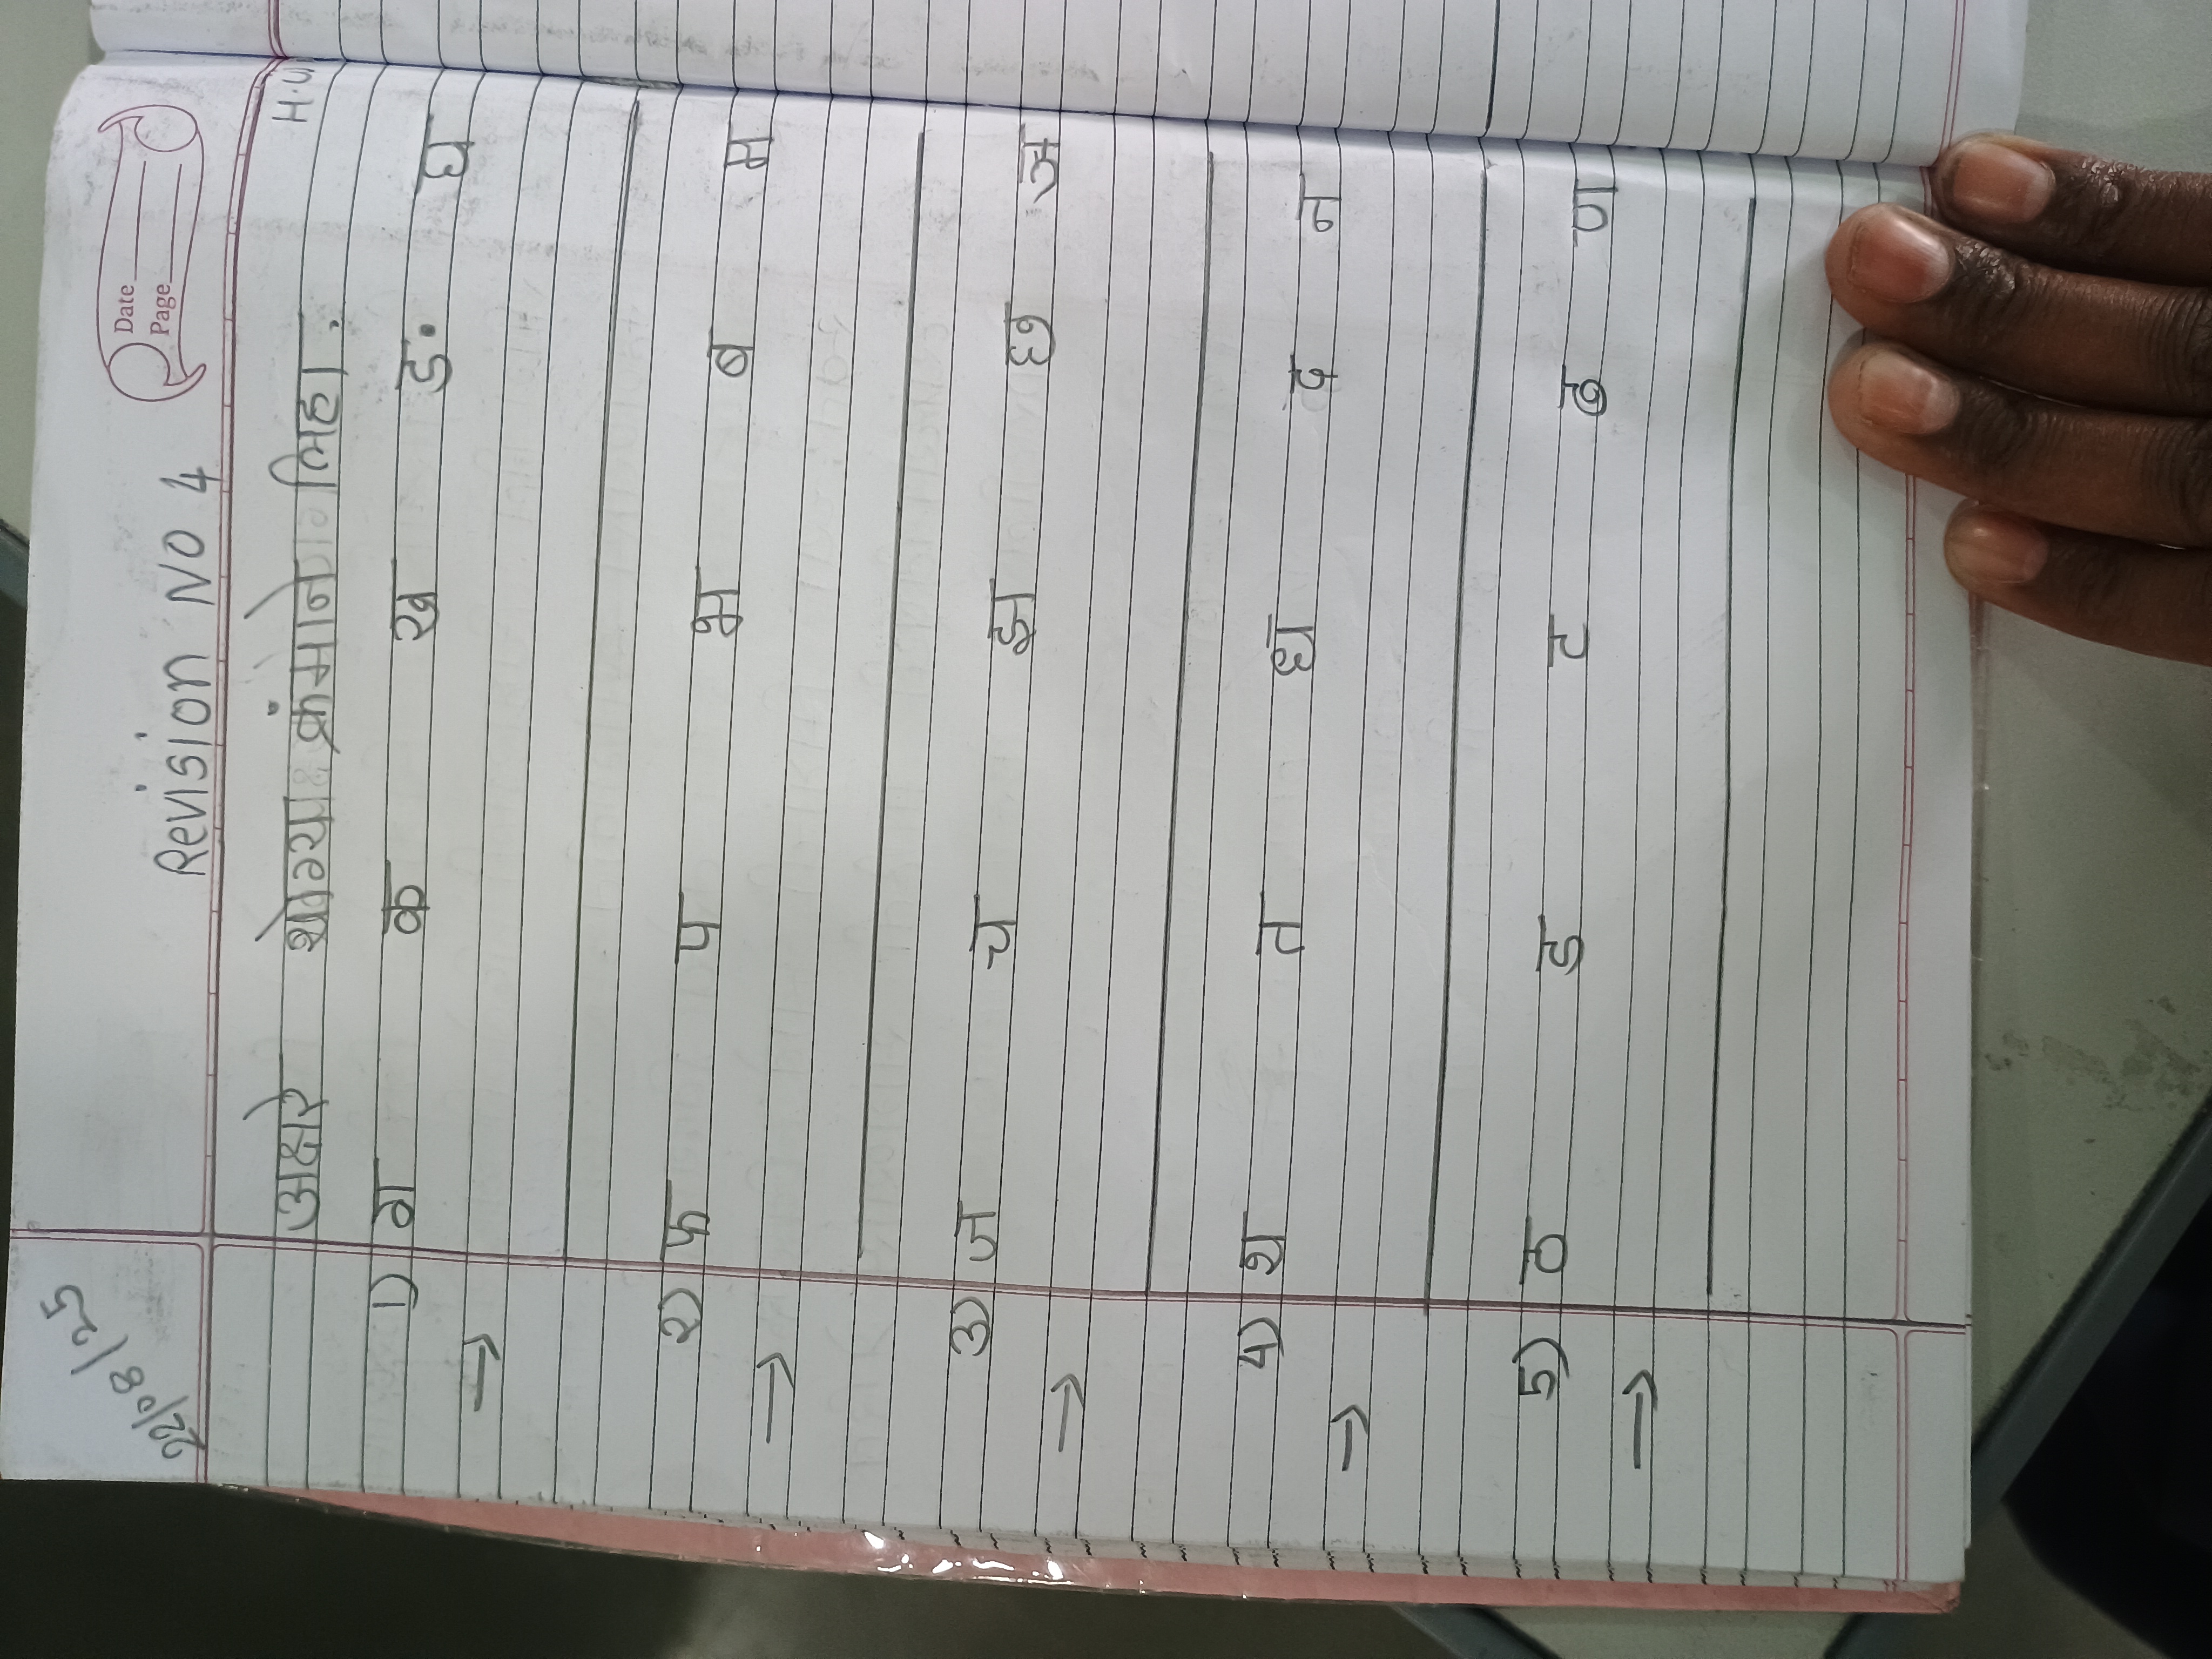 22/08/25
Revision No 4
Date
Page
H.W
अक्षरे योग्य क्रंमाने लिहा.
1) ग क ख ङ घ
→
२) फ प भ ब म
→
३) ज च झ छ ञ
→
4) थ त ध द न
→
5) ठ ड ट ढ ण
→